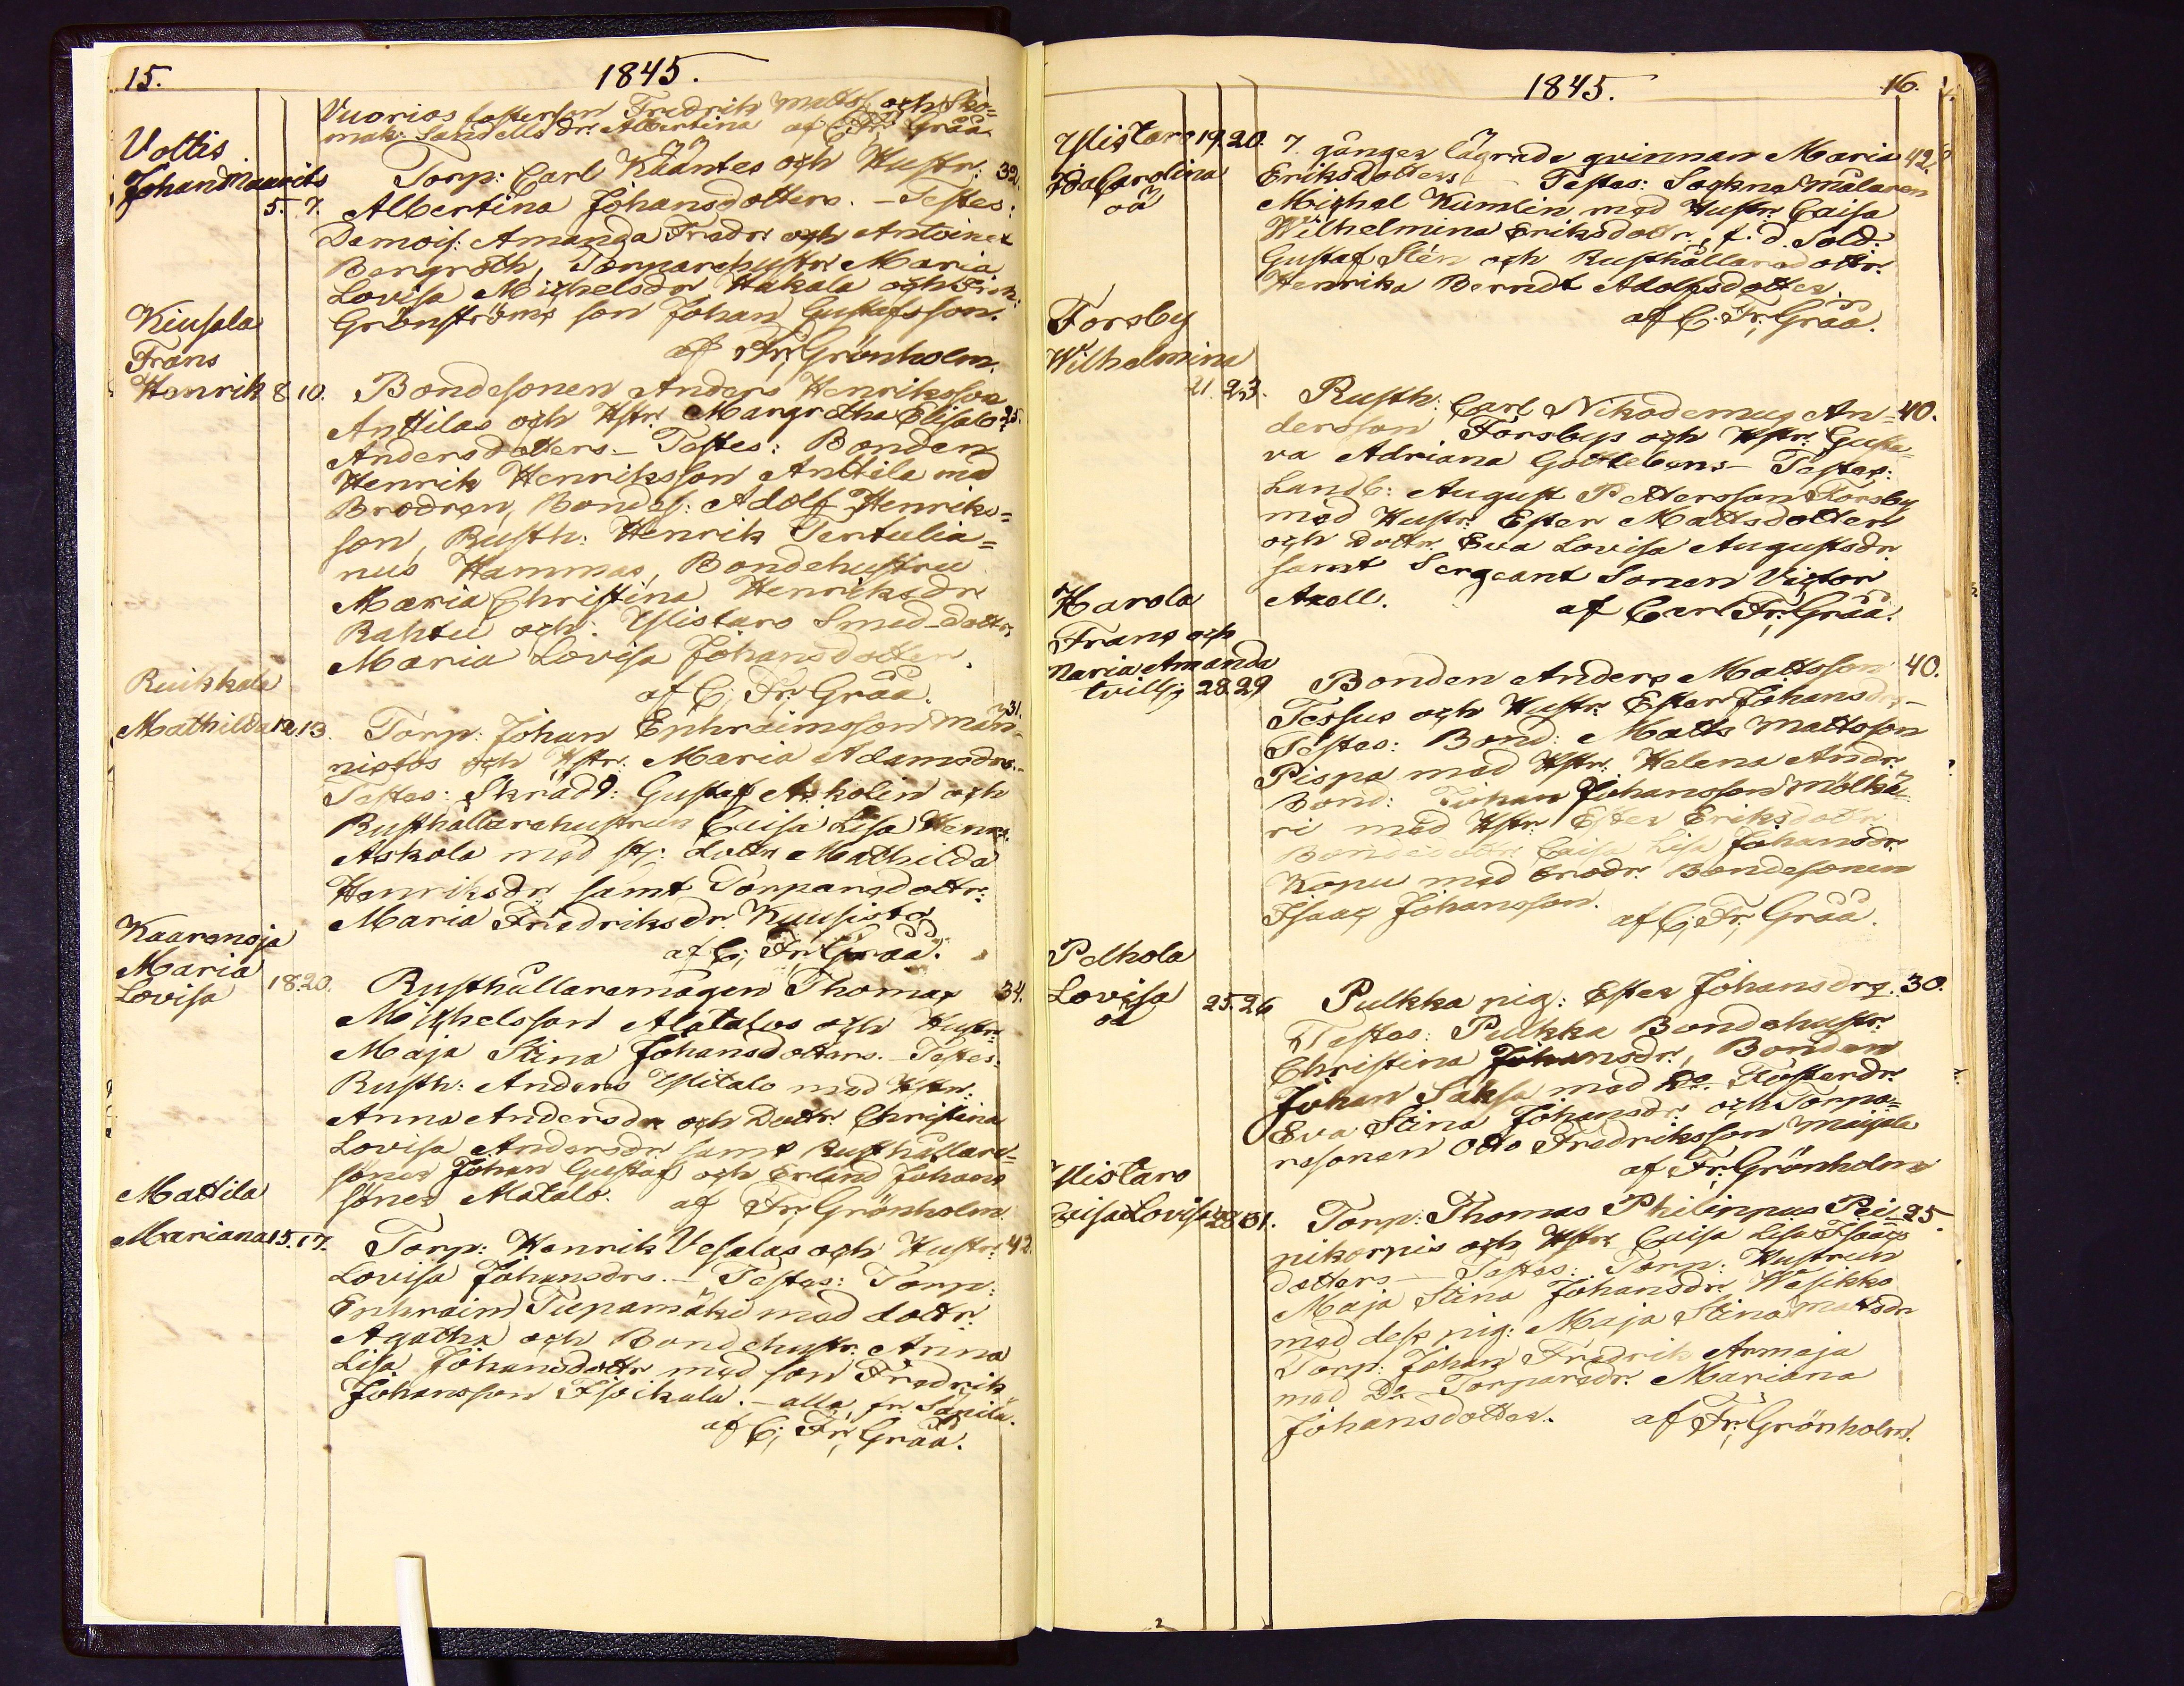 15. 1845.
Vuorios fosterson Fredrik Matts: och Sko=
mak: Sandells dr. Albertina af C: Fr: Gråå.
Voltis
Johan Maurits
5. 7. Torp: Carl Kääntes och Hustr: 32.
Albertina Johansdotters. - Testes:
Demois: Amanda Fredr: och Antoinet
Bergroth, Torparehustr. Maria
Lovisa Michelsdr Hakala och
Grönströms son Johan Gustafsson.
af Fr: Grönholm.
Kiusala
Frans
Henrik 8. 10. Bondesonen Anders Henriksson
Anttilas och Hstr. Margretha Elisab: 25.
Andersdotters - Testes: Bonden
Henrik Henriksson Anttila med
Brodren, Bondes: Adolf Henriks=
son, Rusth: Henrik Tertulia=
nus Hammas, Bondehustru
Maria Christina Henriksdr
Rahtu och Ylistaro Smed-dottr
Maria Lovisa Johansdotter.
af C: Fr: Gråå.
Ruikkala
Mathilda 12. 13. Torp: Johan Ephraimsson Män= 31.
nistös och Hstr. Maria Adamsdrs. -
Testes: Skrädd: Gustaf Askolin och
Rusthållarehustrun Caisa Lisa Henr:
Askola med dottr Mathilda
Henriksdr samt Torparedottr:
Maria Fredriksdr. Kuusisto
af C: Fr: Gråå.
Kaaranoja
Maria
Lovisa 18. 20. Rusthållaremågen Thomas 34.
Michelsson Alatalos och Hustr:
Maja Stina Johansdotters. - Testes:
Rusth: Anders Ylitalo med Hstr:
Anna Andersdr och Dottr. Christina
Lovisa Andersdr samt Rusthållare=
söner Johan Gustaf och Erland Johans
söner Matalo. af Fr: Grönholm.
Mattila
Mariana 15. 17. Torp: Henrik Vesalas och Hustr: 42.
Lovisa Johansdrs. - Testes: Torp:
Ephraim Tupamäki med dottr.
Agatha och Bondehustr. Anna
Lisa Johansdottr med son Fredrik
Johansson Isoikala. - alla fr. Säkylä.
af C: Fr: Gråå.
1845. 16.
Ylistaro 19. 20. 7. gånger lägrade qvinnan Maria 42.
Ida Carolina
oä
Eriksdotters Testes: Sockne Målaren
Michel Kumlin, med Hustr. Caisa
Wilhelmina Eriksdottr, f. d. Sold:
Gustaf Stén och Rusthållaredottr.
Henrika Berndt Adolfsdotter
af C. Fr: Gråå.
Forsby
Wilhelmina
21. 23. Rusth: Carl Nikodemus An= 40.
dersson Forsbys och Hstr. Gusta=
va Adriana Gottlebens - Testes:
Landb: August Pettersson Forsby
med Hustr. Ester Mattsdotter
och dottr. Eva Lovisa Augustsdr.
samt Sergeant Sonen Victor
Axell. af Carl Fr: Gråå.
Harola
Frans och
Maria Amanda
tvill: 28. 29 Bonden Anders Mattsson 40.
Tessus och Hustr. Ester Johansdrs -
Testes: Bond: Matts Mattsson
Pispa med Hstr. Helena Andr:
Bond: Johan Johansson Mölkä=
ri med Hstr. Ester Eriksdottr.
Bondedottr. Caisa Lisa Johansdr.
Kopu med brodr. Bondesonen
Isaac Johansson. af C: Fr: Gråå.
Pelhola
Lovisa
oä 25. 26 Pulkka pig: Ester Johansdrs. 30.
Testes: Pulkka Bondehustr.
Christina Johansdr., Bonden
Johan Saksa med Do. Fosterdr.
Eva Stina Johansdr. och Torpa=
resonen Otto Fredriksson Maijala
af Fr: Grönholm
Ylistaro
Caisa Lovisa 28. 31. Torp: Thomas Philippus Pei= 25.
pikorpis och Hstr. Caisa Lisa Isaacs
dotters - Testes: Torp: Hustrun
Maja Stina Johansdr. Wesikko
med dess pig: Maja Stina Mattsdr
Torp: Johan Fredrik Armaja
med Do. Torparedr. Mariana
Johansdotter. af Fr: Grönholm.